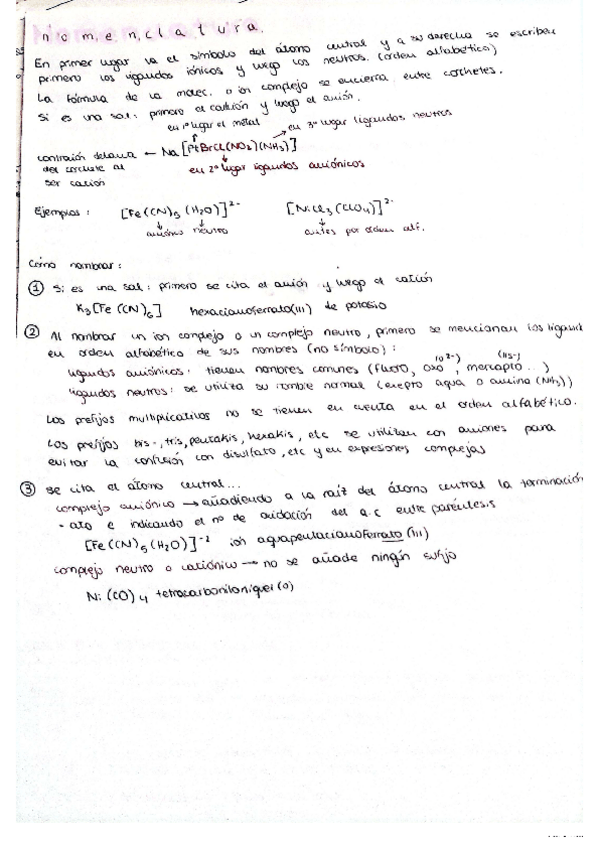 nomenclatura.
En primer lugar va el símbolo del átomo central y a su derecha se escriben
primero los ligandos iónicos y luego los neutros. (orden alfabético)
La fórmula de la molec. o ion complejo se encierra entre corchetes.
Si es una sal: primero el catión y luego el anión.
en 1º lugar el metal
en 3º lugar ligandos neutros
← Na[PtBrCl(NO2)(NH3)]
del corchete al
ser catión
en 2º lugar ligandos aniónicos
Ejemplos: [Fe(CN)5(H2O)]2- [NiCl3(ClO4)]2-
aniónico neutro antes por orden alf.
Cómo nombrar:
① Si es una sal: primero se cita el anión y luego el catión
K3[Fe(CN)6] hexacianoferrato(III) de potasio
② Al nombrar un ion complejo o un complejo neutro, primero se mencionan los
en orden alfabético de sus nombres (no símbolo):
(O2-) (HS-)
ligandos aniónicos: tienen nombres comunes (fluoro, oxo, mercapto...)
ligandos neutros: se utiliza su nombre normal (excepto aqua o amino (NH3))
Los prefijos multiplicativos no se tienen en cuenta en el orden alfabético.
Los prefijos bis-, tris, pentakis, hexakis, etc se utilizan con aniones para
evitar la confusión con disulfato, etc y en expresiones complejas
③ se cita el átomo central...
complejo aniónico → añadiendo a la raíz del átomo central la terminación
-ato e indicando el nº de oxidación del a.c entre paréntesis
[Fe(CN)5(H2O)]-2 ion aquapentacianoferrato (III)
complejo neutro o catiónico → no se añade ningún sufijo
Ni(CO)4 tetracarbonilníquel(0)